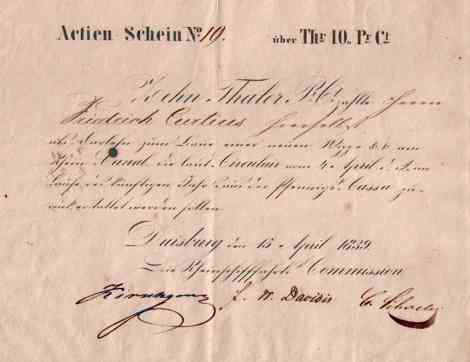 Actien-Schein No. 19. über Thr. 10. Pr. Ct.
Zehn Thaler Pr. Ct. zahlte Herr
Friedrich Curtius hierselbst
als Darlehn zum Baue einer neuen am
Rhein Canal die laut Circular vom 4. April d. J. im
Laufe des künftigen Jahr aus der Pfennigs Cassa zu-
rückerstattet werden sollen.
Duisburg den 15. April 1839
Die Rheinschifffahrts Commission
F. W. Davidis